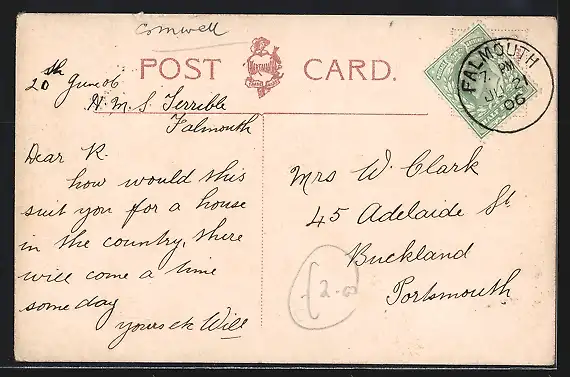 cornwell
POST CARD.
FALMOUTH
7. PM
JU 21
06
20th June 06
H.M.S. Terrible
Falmouth
Dear K.
how would this
suit you for a house
in the country, there
will come a time
some day
yours etc Will
Mrs W. Clark
45 Adelaide St
Buckland
Portsmouth
2.00